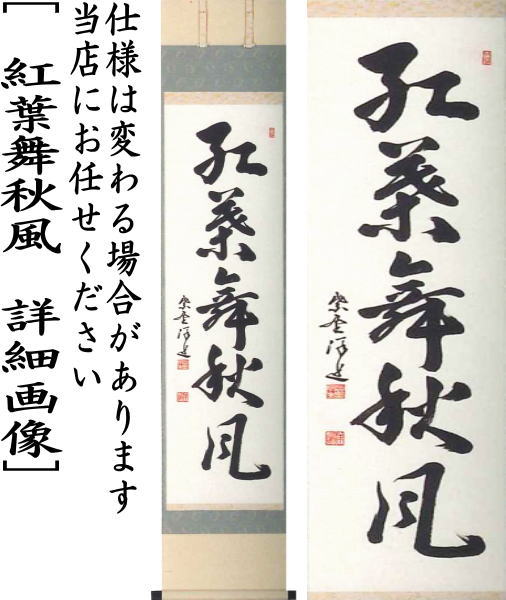 仕様は変わる場合があります
当店にお任せください
[ 紅葉舞秋風 詳細画像]
紅葉舞秋風
紅葉舞秋風